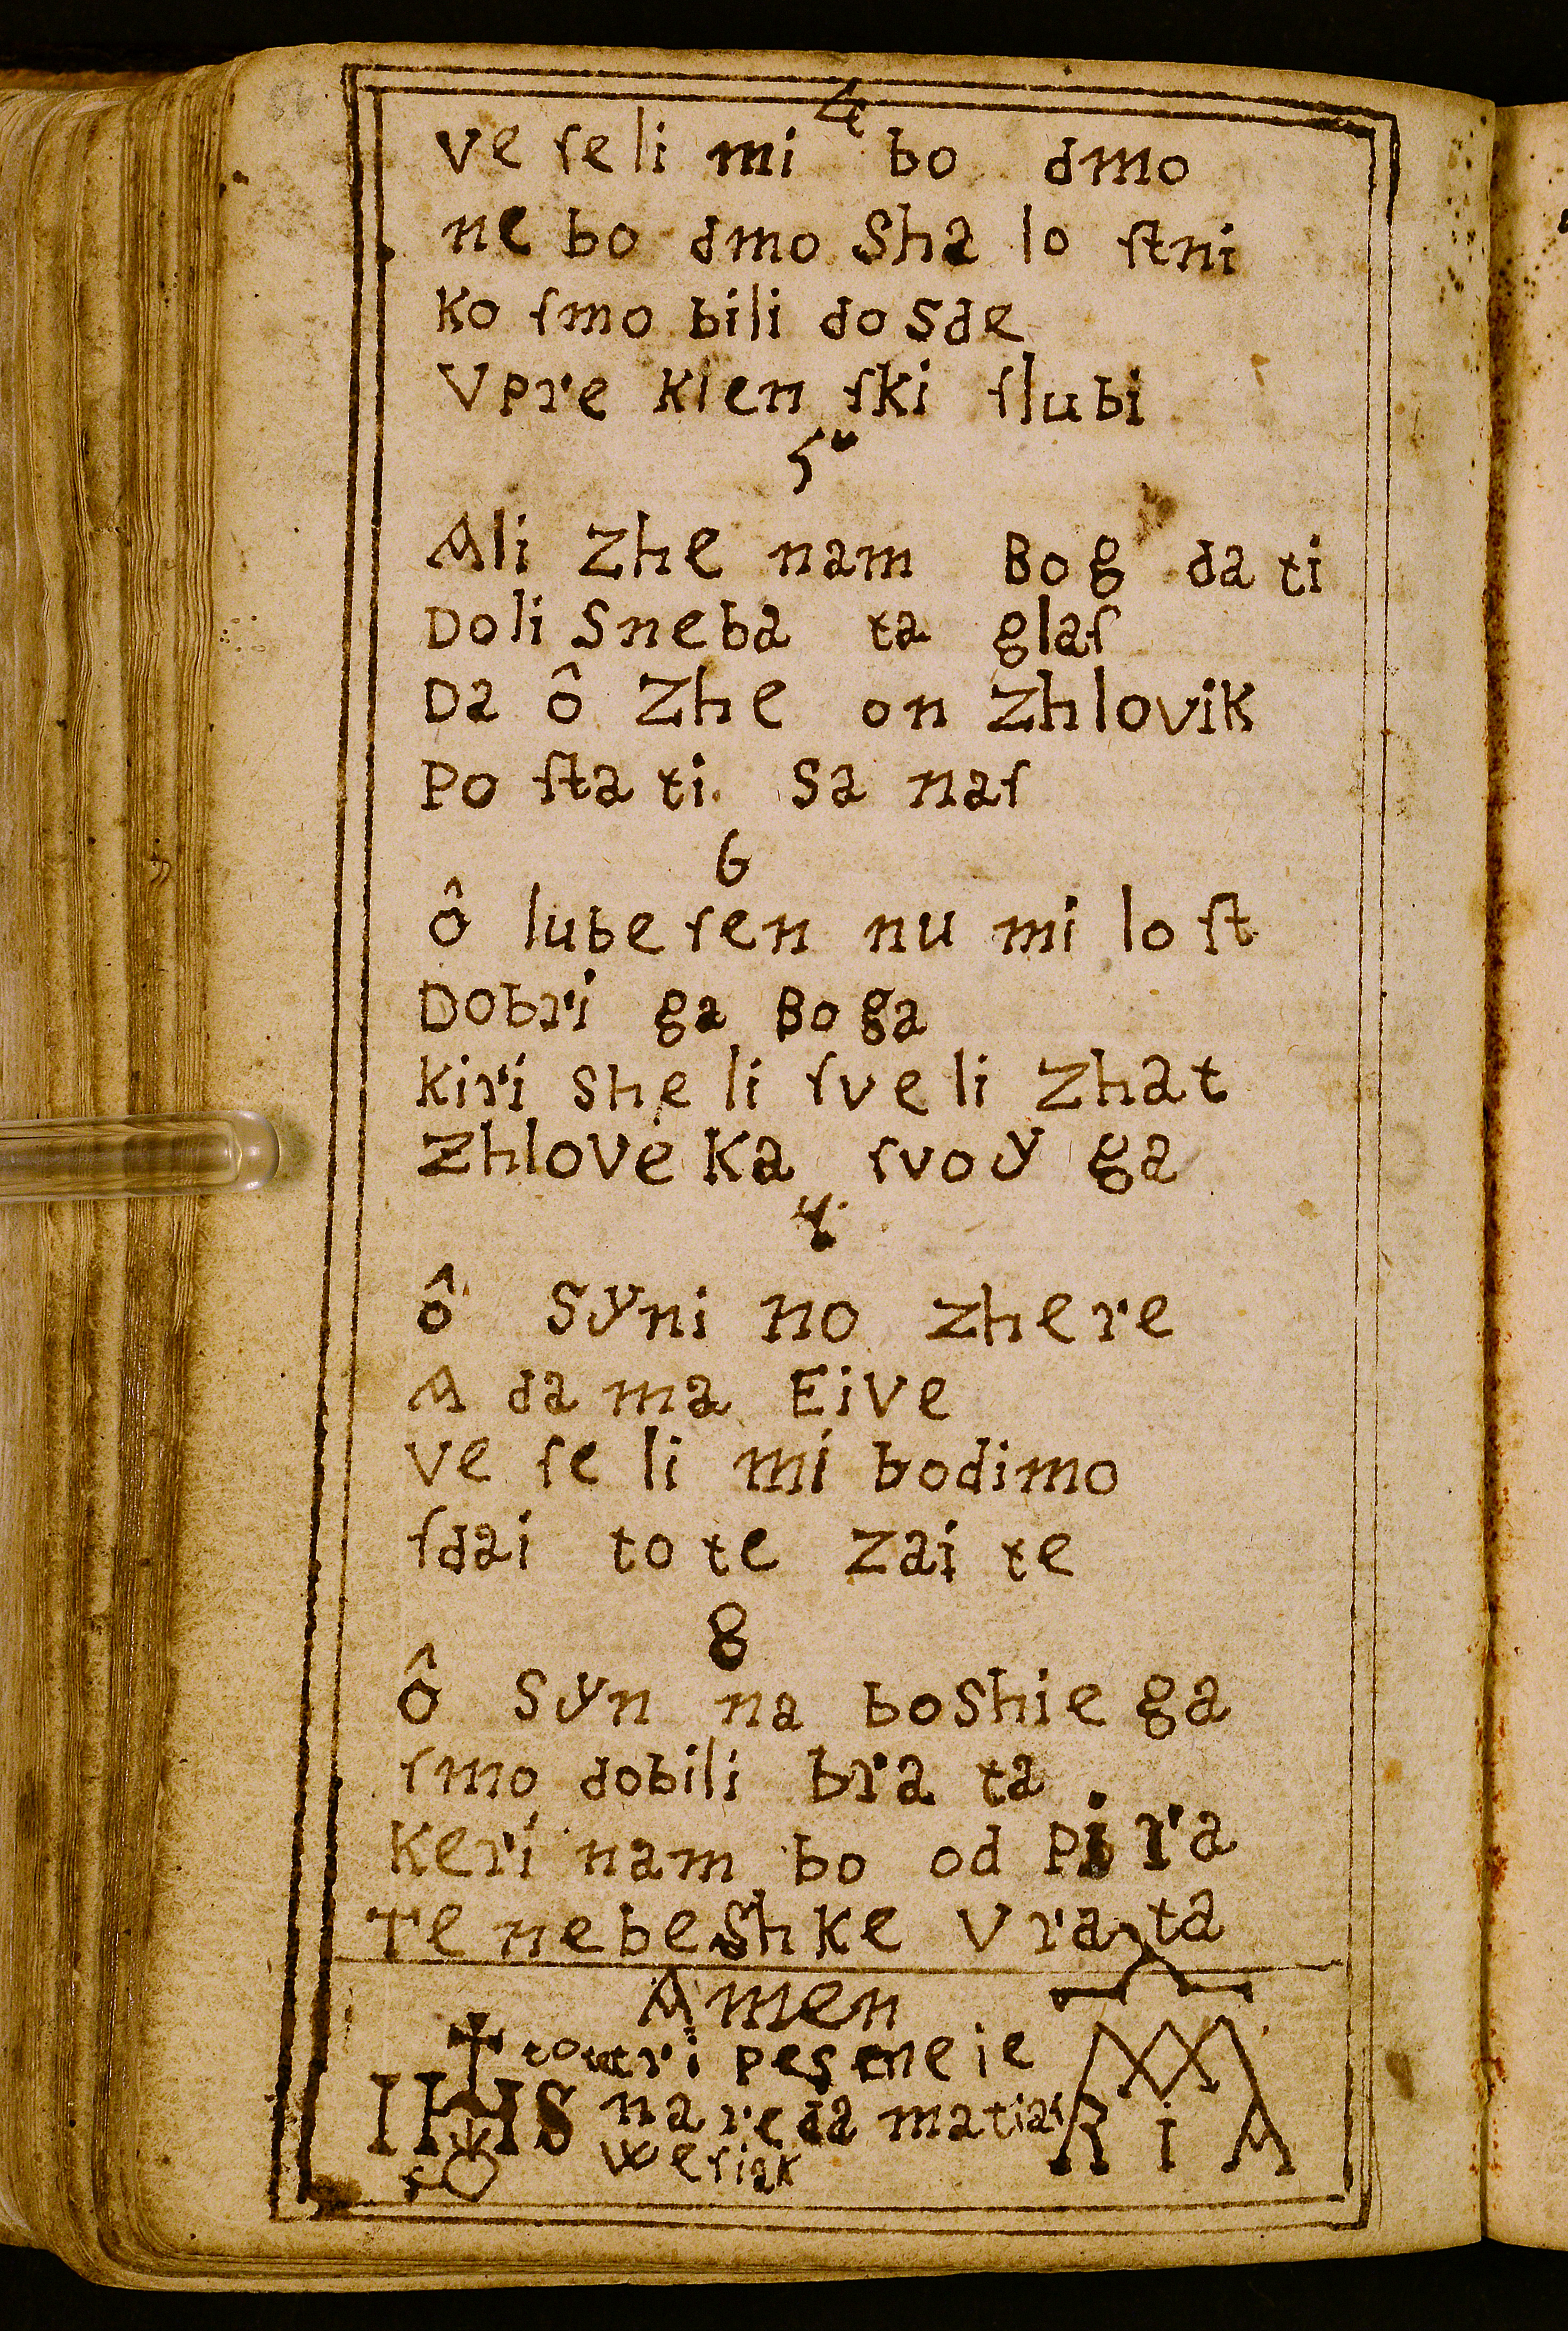 56
4
ve ſeli mi bo dmo
ne bo dmo Sha lo ſtni
Ko ſmo bili do sde
Vpre Klen ſki ſlubi
5
Ali Zhe nam Bog da ti
Doli Sneba ta glaſ
Da ô Zhe on Zhlovik
Po ſta ti Sa naſ
6
ô lube ſen nu mi lo ſt
Dobri ga Bo ga
Kiri she li ſve li Zhat
Zhlove Ka ſvoy ga
ô Syni no zhere
A da ma Eive
ve ſe li mi bodimo
ſdai to te zai te
8
ô Syn na boshie ga
ſmo dobili bra ta
Keri nam bo od Pi ra
Te nebeShke Vra ta
Amen
peſene ie
IHS na reda matiai
MA
RIA
weſiak